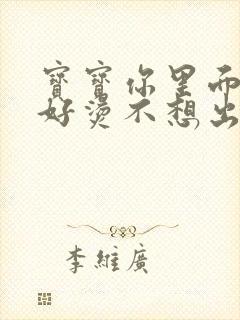 寶寶你里面
好燙不想出
李維廣